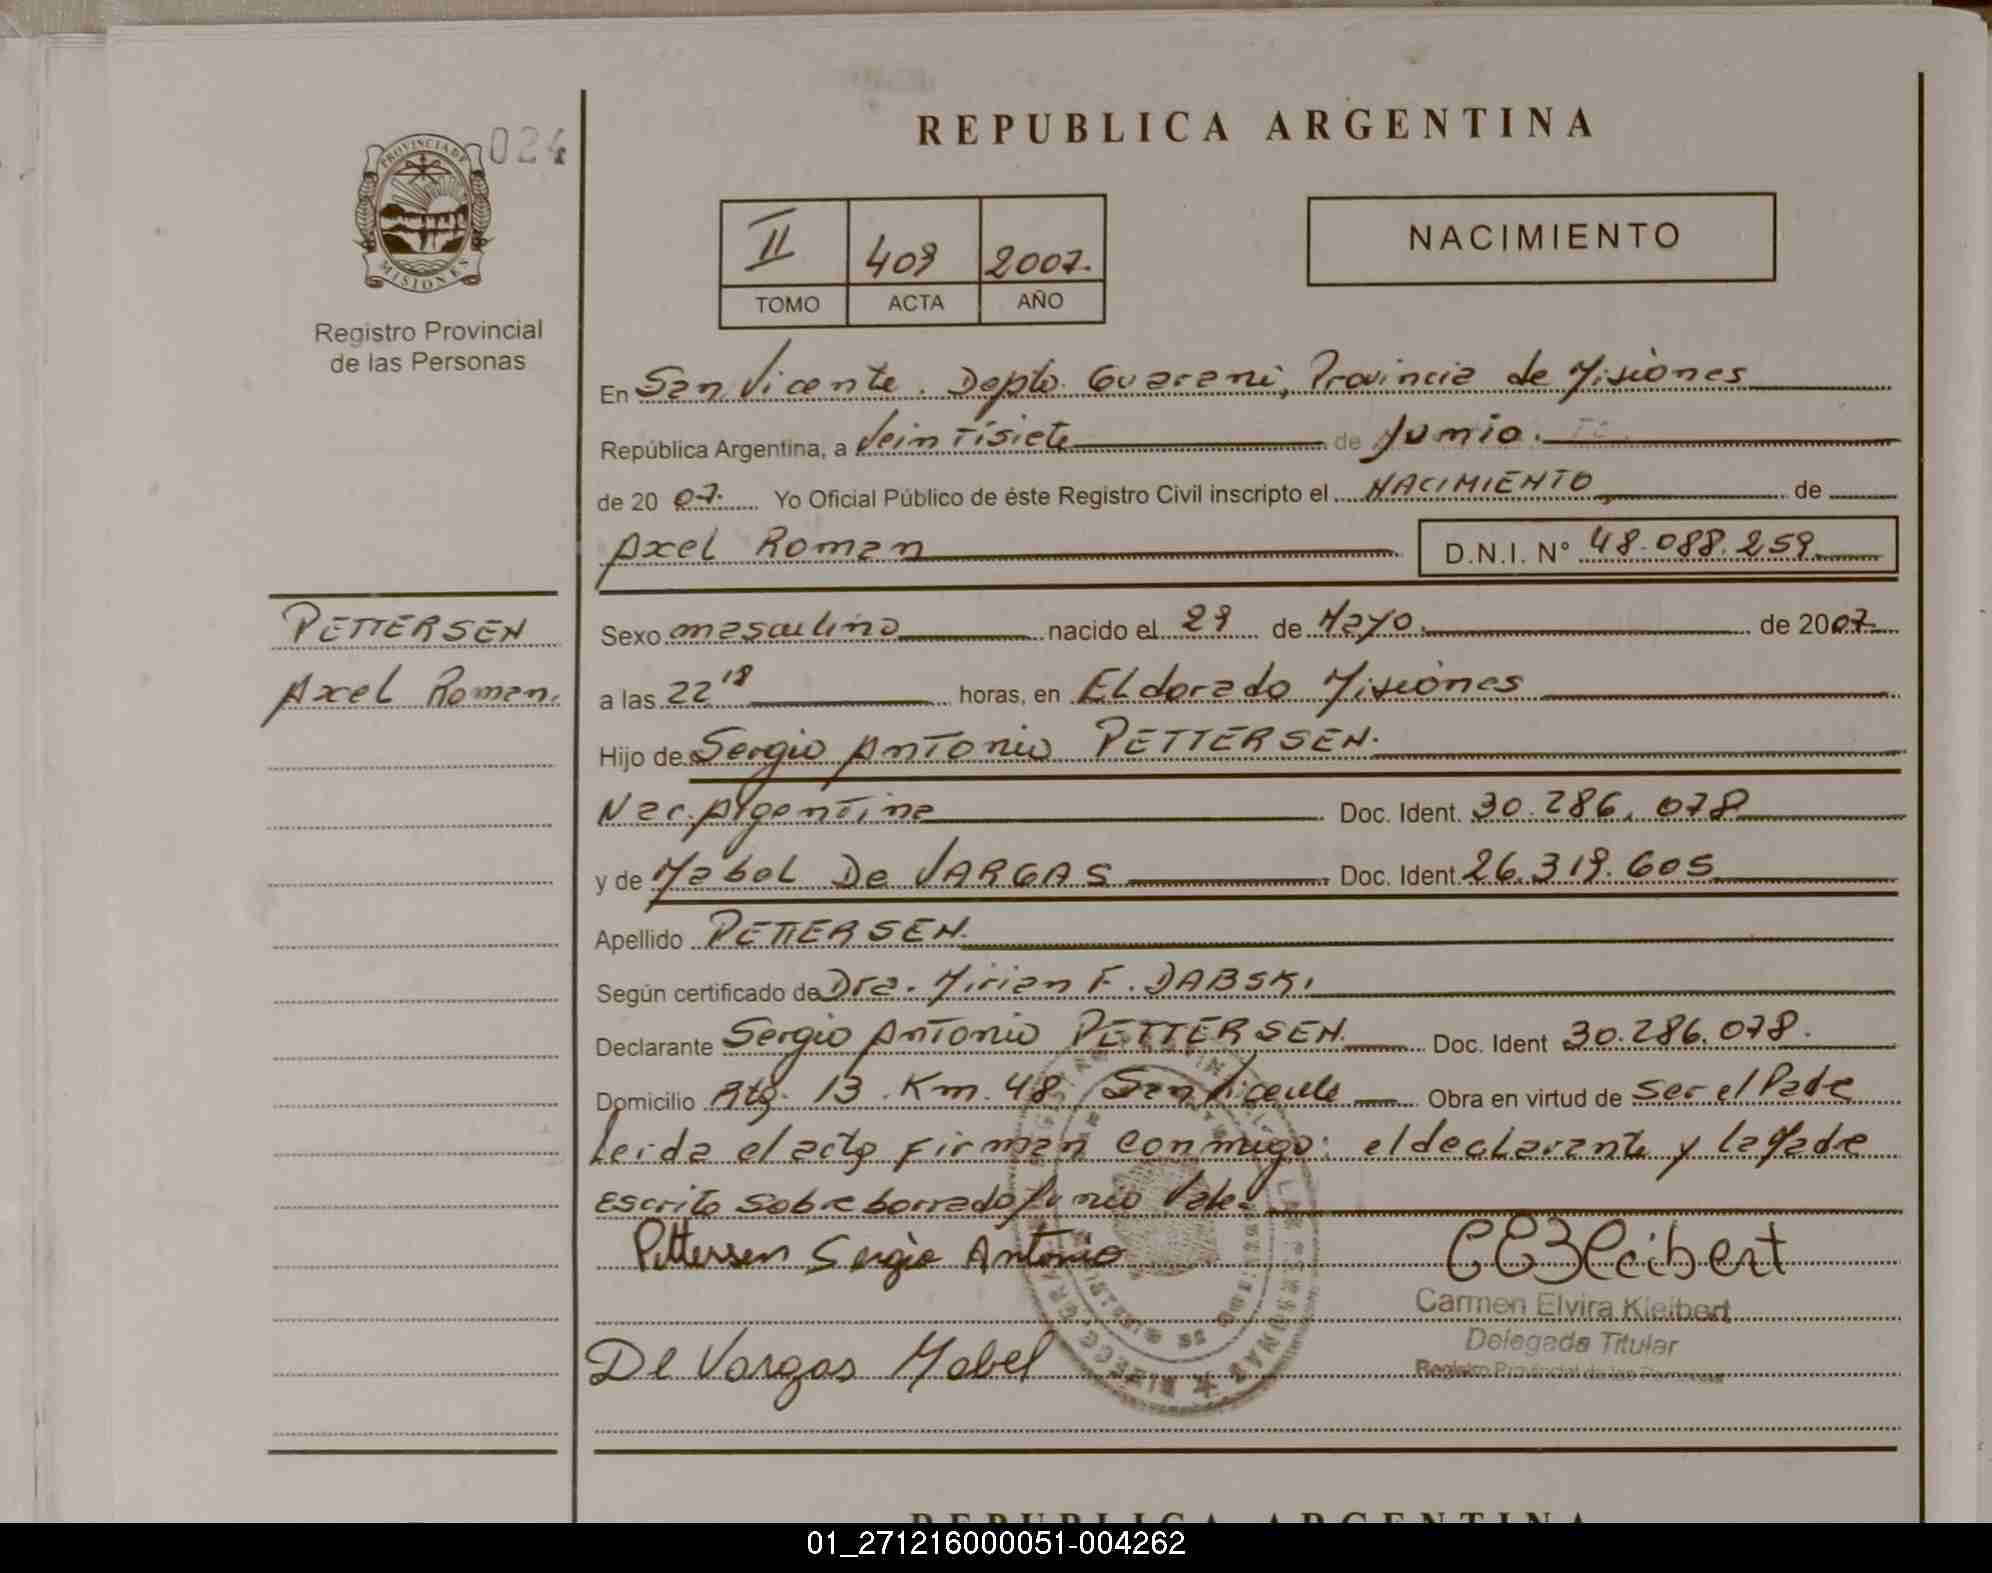 REPUBLICA ARGENTINA
024
PROVINCIA DE
MISIONES
Registro Provincial
de las Personas
II 409 2007.
TOMO ACTA AÑO
NACIMIENTO
En San Vicente. Depto. Guarani, Provincia de Misiones
República Argentina, a Veintisiete de Junio.
de 20 07. Yo Oficial Público de éste Registro Civil inscripto el NACIMIENTO de
Axel Roman D.N.I. N° 48.088.259
PETTERSEN
Axel Roman.
Sexo masculino nacido el 29 de Mayo. de 2007
a las 22 18 horas, en Eldorado Misiones
Hijo de Sergio Antonio PETTERSEN.
Nac. Argentina Doc. Ident. 30.286.078
y de Mabel De VARGAS Doc. Ident. 26.319.605
Apellido PETTERSEN.
Según certificado de Dra. Mirian F. DABSKI
Declarante Sergio Antonio PETTERSEN. Doc. Ident 30.286.078.
Domicilio Rta. 13 Km. 48 San Vicente Obra en virtud de ser el Padre
Leida el acta Firman conmigo: el declarante y la Madre
escrito sobre borrado Junio Vale.
Pettersen Sergio Antonio
CEKleibert
Carmen Elvira Kleibert
Delegada Titular
Registro Provincial de las Personas
De Vargas Mabel
REPUBLICA ARGENTINA
01_271216000051-004262